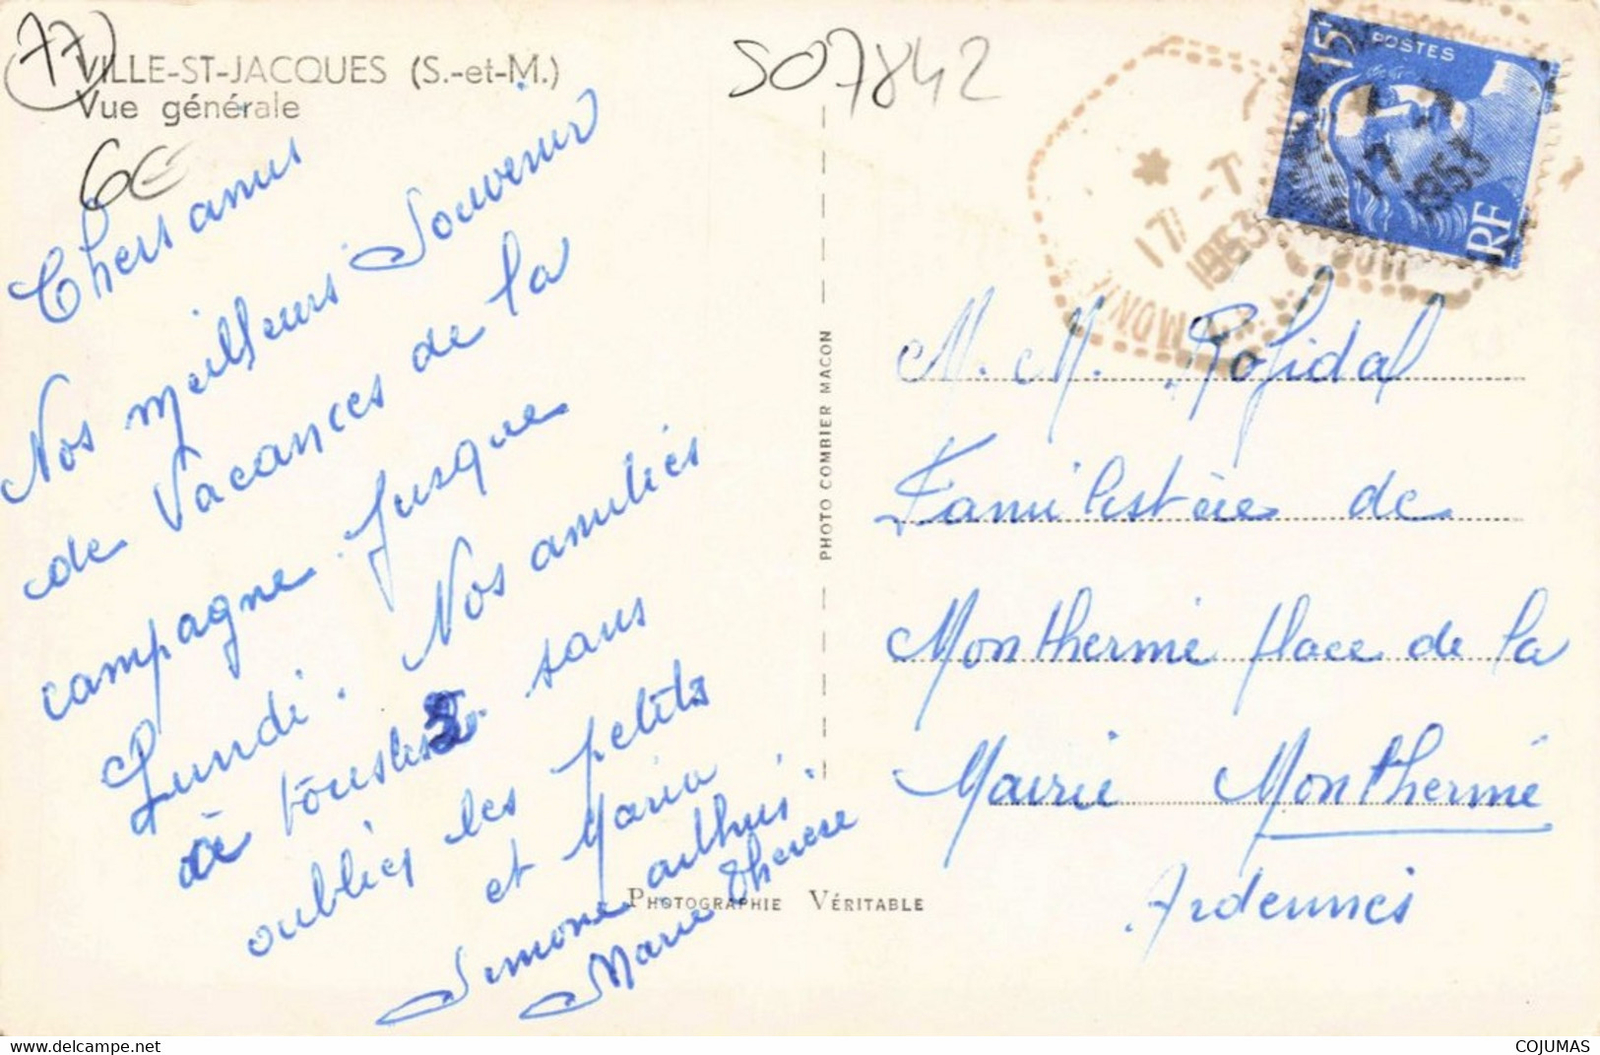 77
VILLE-ST-JACQUES (S.-et-M.)
Vue générale
6€
S07842
15F POSTES
RF
17
1953
17 -7
1953
Chers amis
Nos meilleurs Souvenir
de Vacances de la
campagne Jusque
Lundi. Nos amitiés
à tous les 5 sans
oublier les petits
et Maria
Simone arthur.
Marie Therese
PHOTO COMBIER MACON
PHOTOGRAPHIE VÉRITABLE
M. M. Rofidal
Familistère de
Monthermé Place de la
Mairie Monthermé
Ardennes
COJUMAS